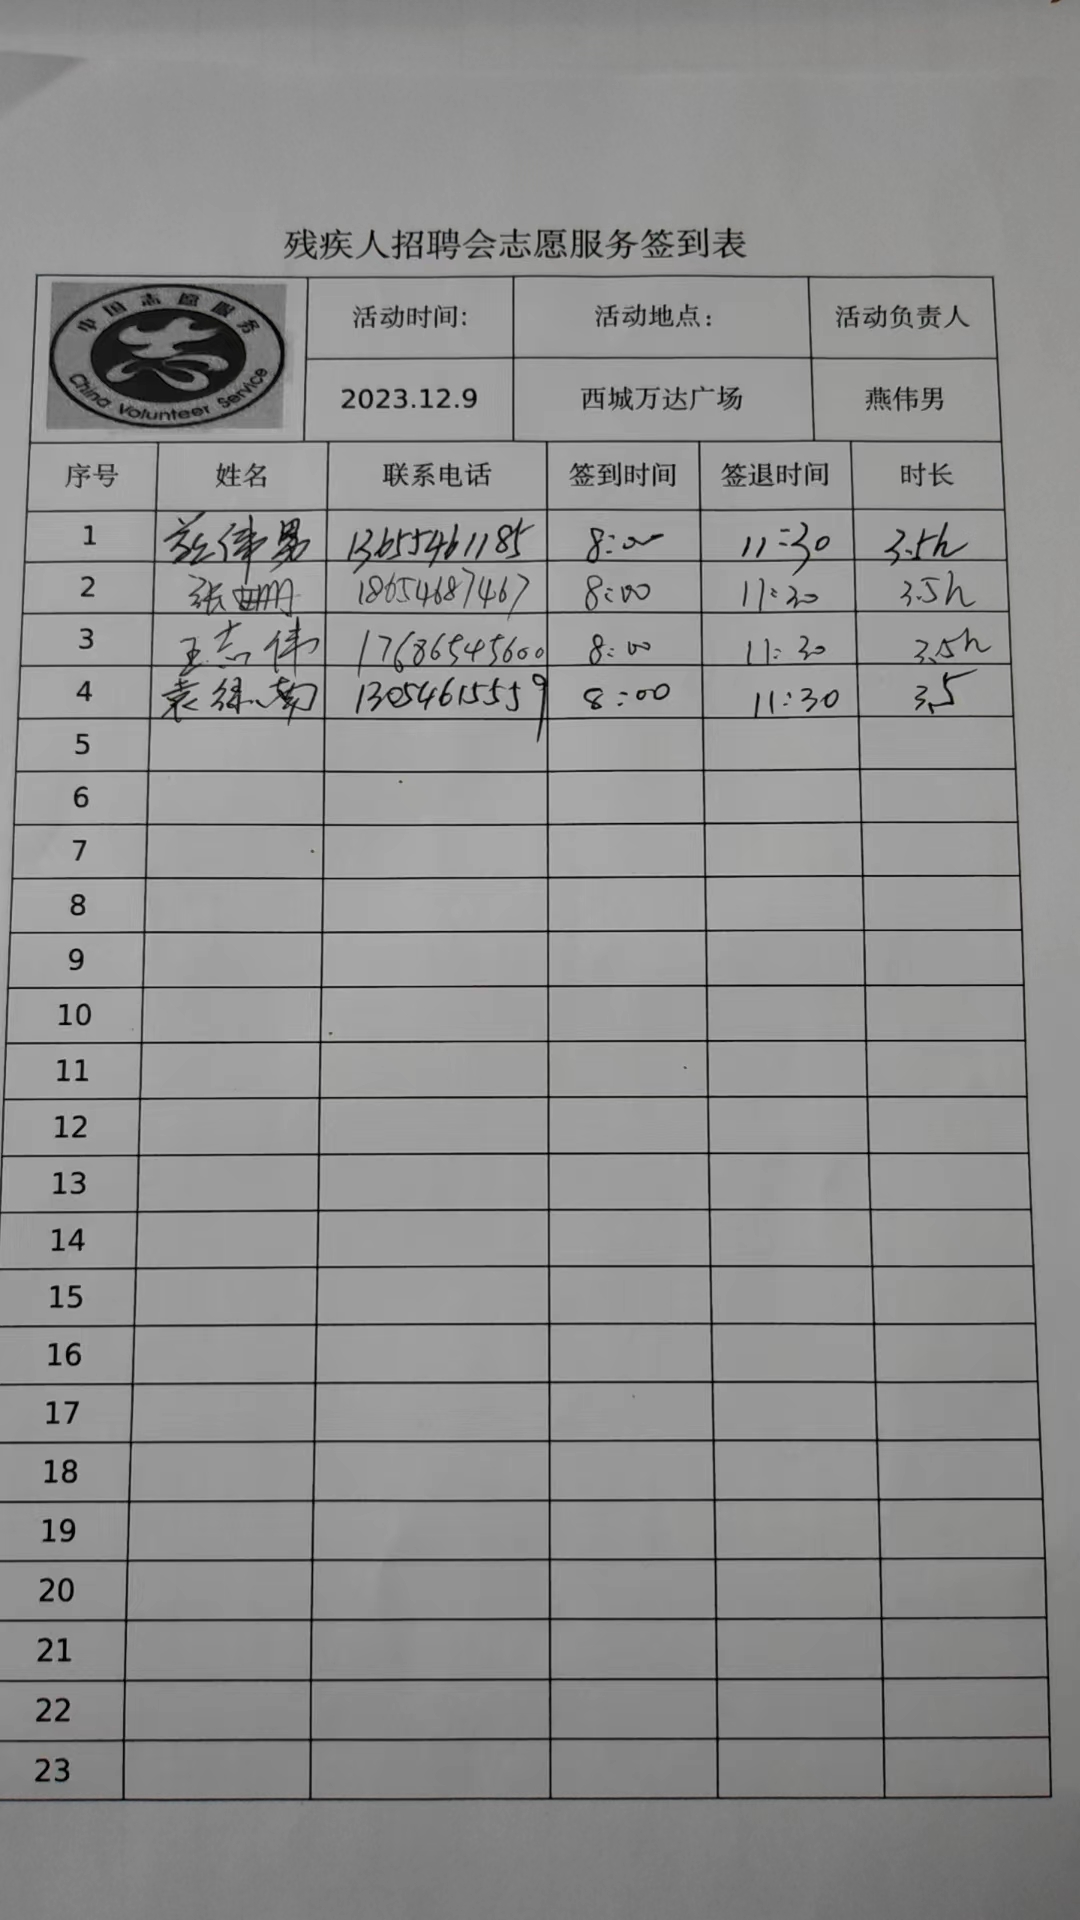 残疾人招聘会志愿服务签到表
中国志愿服务
China Volunteer Service
活动时间: 活动地点: 活动负责人
2023.12.9 西城万达广场 燕伟男
序号 姓名 联系电话 签到时间 签退时间 时长
1 伟男 13655461185 8:00 11:30 3.5h
2 张曲册 18654687467 8:00 11:30 3.5h
3 王志伟 17686545600 8:00 11:30 3.5h
4 袁 13054615559 8:00 11:30 3.5
5
6
7
8
9
10
11
12
13
14
15
16
17
18
19
20
21
22
23